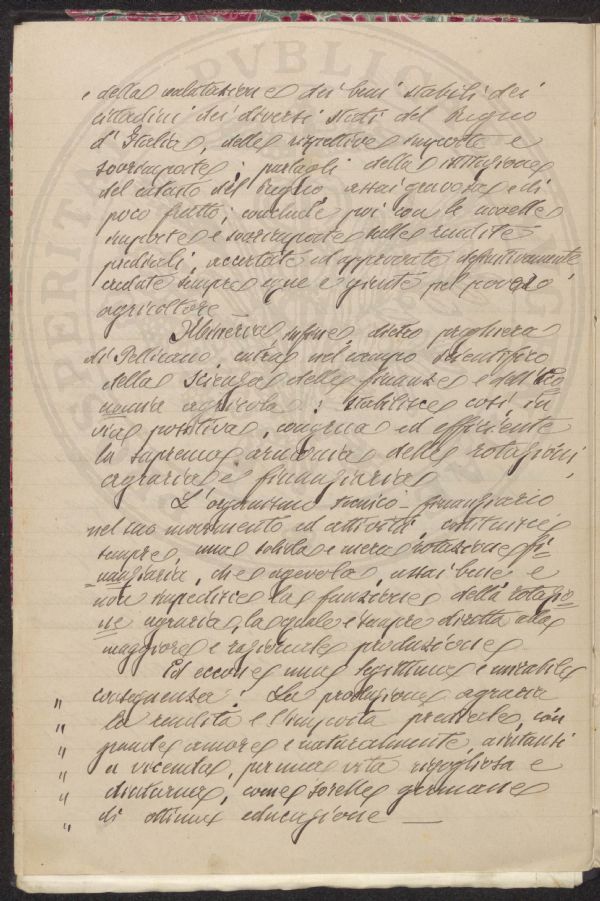 e della valutazione dei beni stabili dei
cittadini dei diversi stati del Regno
d'Italia, delle rispettive imposte e
sovrimposte; parlagli della istituzione
del catasto del Puglio, assai gravosa e di
poco frutto; conclude poi con le novelle
imposte e sovrimposte sulle rendite
prediali, accertate ed approvate definitivamente
credute sempre eque e giuste pel povero
agricoltore
Minerva infine, dietro preghiera
di Pellicano, entra nel campo scientifico
della Scienza delle finanze e dell'Eco
nomia agricola: stabilisce così, in
via positiva, congrua ed efficiente
la suprema armonia delle rotazioni
agraria e finanziaria
L'organismo tecnico-finanziario
nel suo movimento ed attività, costituisce
sempre una solida e vera rotazione fi-
nanziaria, che agevola assai bene e
non impedisce la funzione della rotazio-
ne agraria, la quale è sempre diretta alla
maggiore e razionale produzione
Ed eccone una legittima e mirabile
conseguenza: La produzione agraria
" la rendita e l'imposta prediale, con
" grande amore e naturalmente, aiutansi
" a vicenda, per una vita rigogliosa e
" diuturna, come sorelle germane
" di ottima educazione —